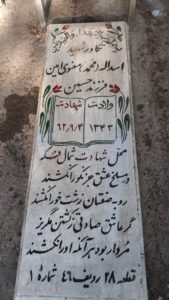 اسداله (محمد) معنوی امین
فرزند حسین
ولادت شهادت
۱۳۴۳ ۶۲/۹/۳
محل شهادت شمال فکه
در مسلخ عشق جز نکو را نکشند
روبه صفتان زشت خو را نکشند
گر عاشق صادقی ز کشتن مگریز
مردار بود هر آنکه او را نکشند
قطعه ۲۸ ردیف ۴۶ شماره ۱